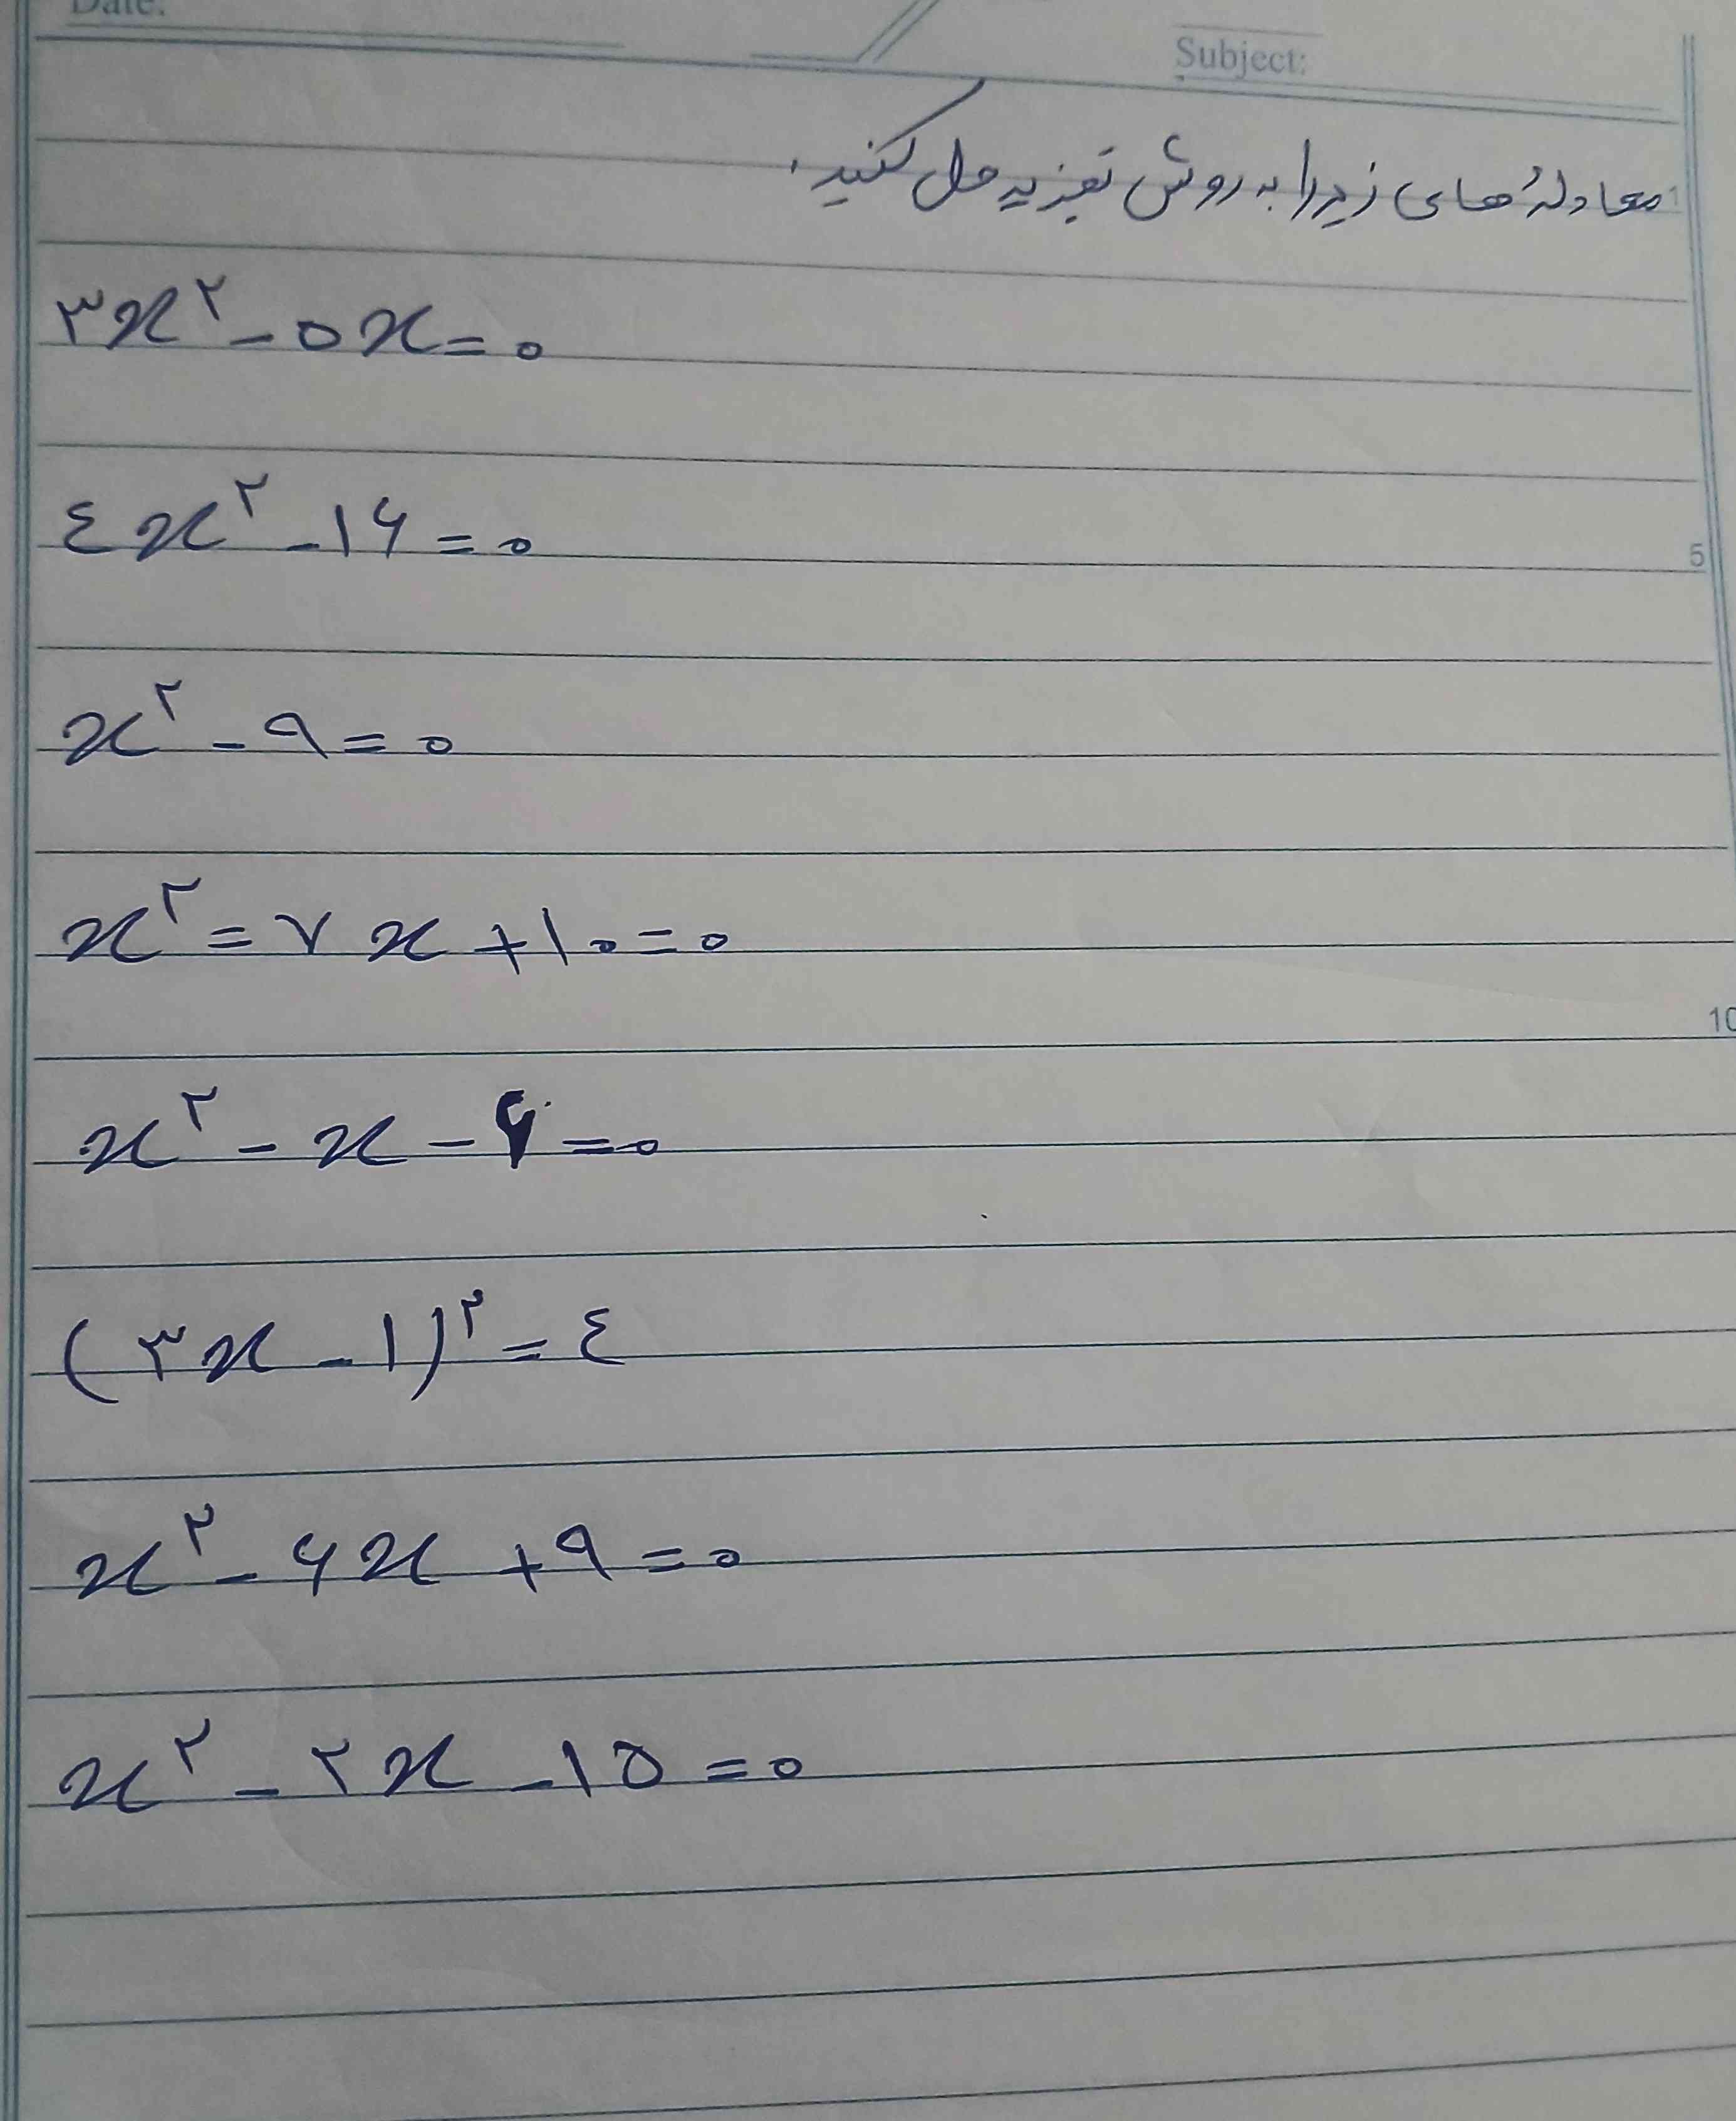 Date:
Subject:
1
معادلهٔ های زیر را به روش تجزیه حل کنید.
۳x^۲ - ۵x = ۰
٤x^۲ - ۱۶ = ۰
5
x^۲ - ۹ = ۰
x^۲ = ۷x + ۱۰ = ۰
10
x^۲ - x - ۶ = ۰
(۳x - ۱)^۲ = ٤
x^۲ - ۶x + ۹ = ۰
x^۲ - ۲x - ۱۵ = ۰